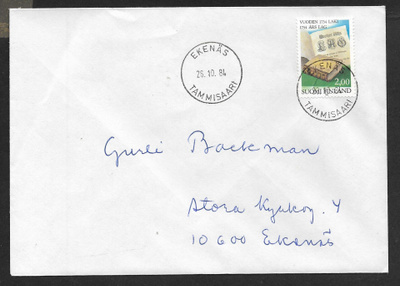 EKENÄS
25.10.84
TAMMISAARI
VUODEN 1734 LAKI
1734 ÅRS LAG
EKENÄS
2,00
SUOMI FINLAND
TAMMISAARI
Gurli Backman
Stora Kyrkog. 4
10600 Ekenäs